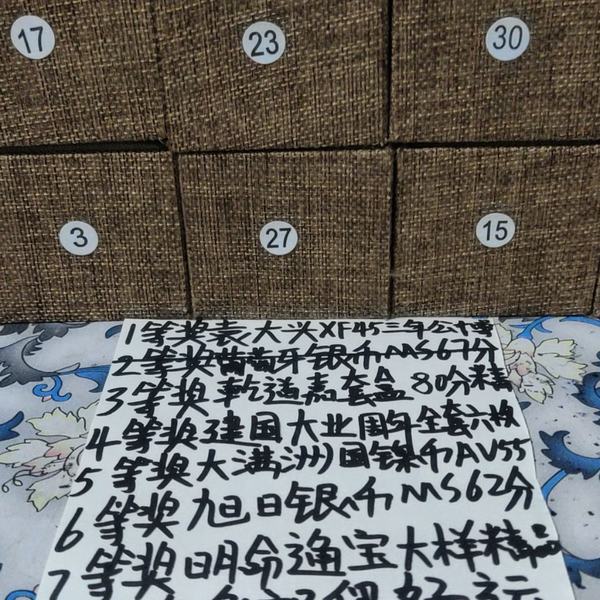 17 23 30
3 27 15
1等奖袁大头XF45三年公博
2等奖葡萄牙银币MS67分
3等奖乾道嘉套盒80分精
4等奖建国大业周年全套六枚
5等奖大满洲国镍币AU55
6等奖旭日银币MS62分
7等奖明命通宝大样精品